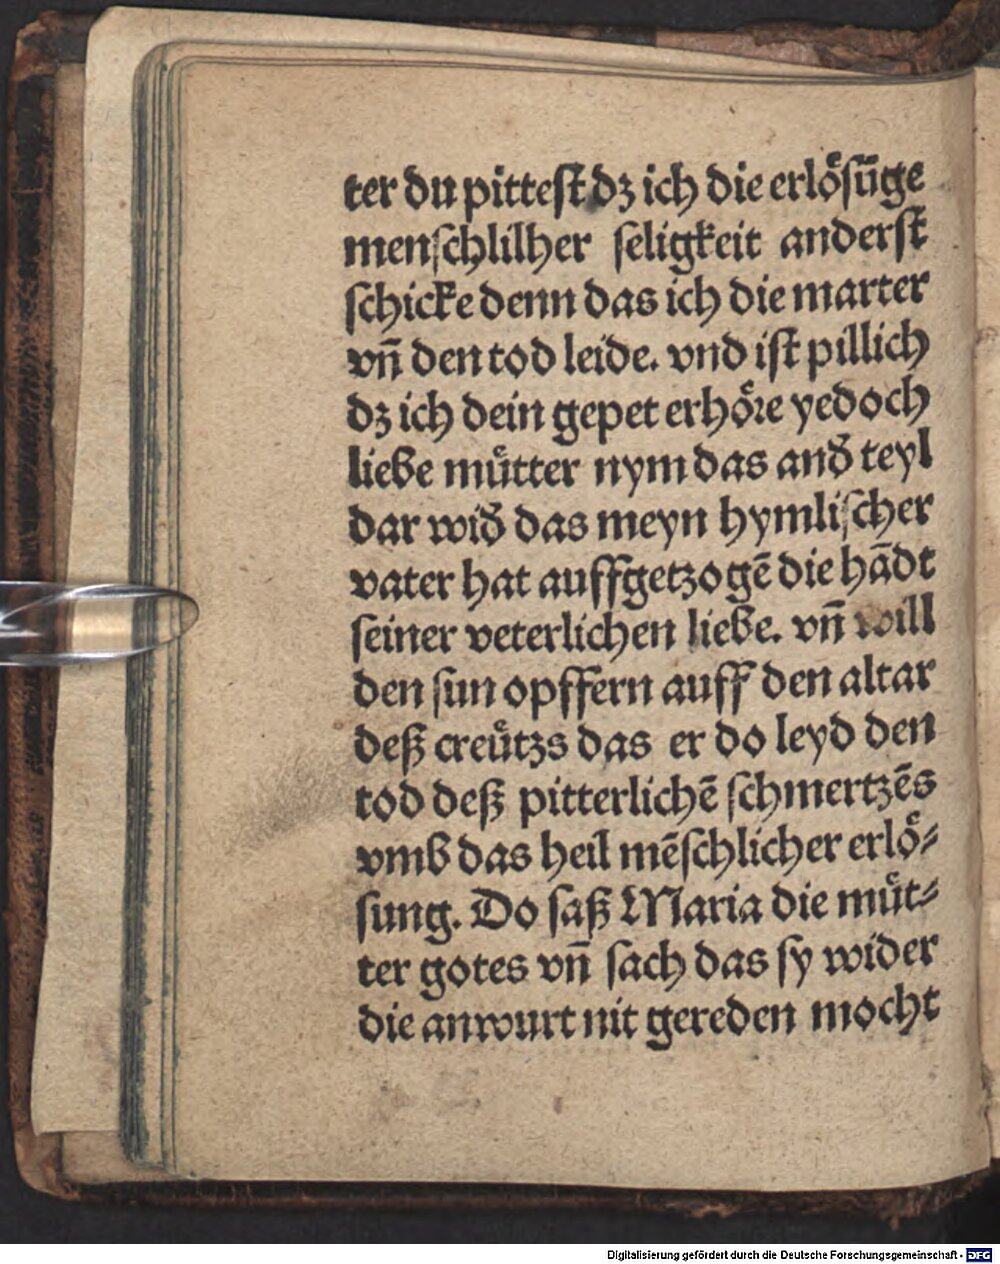 ter du pittest dz ich die erloͤsūge
menschlilher seligkeit anderst
schicke denn das ich die marter
vñ den tod leide. vnd ist pillich
dz ich dein gepet erhoͤre yedoch
liebe muͤtter nym das andꝰ teyl
dar widꝰ das meyn hymlischer
vater hat auffgetzogē die hādt
seiner veterlichen liebe. vñ will
den sun opffern auff den altar
deß creuͤtzs das er do leyd den
tod deß pitterlichē schmertzēs
vmb das heil mēschlicher erloͤ⸗
sung. Do saß Maria die muͤt⸗
ter gotes vñ sach das sy wider
die anwurt nit gereden mocht
Digitalisierung gefördert durch die Deutsche Forschungsgemeinschaft - DFG